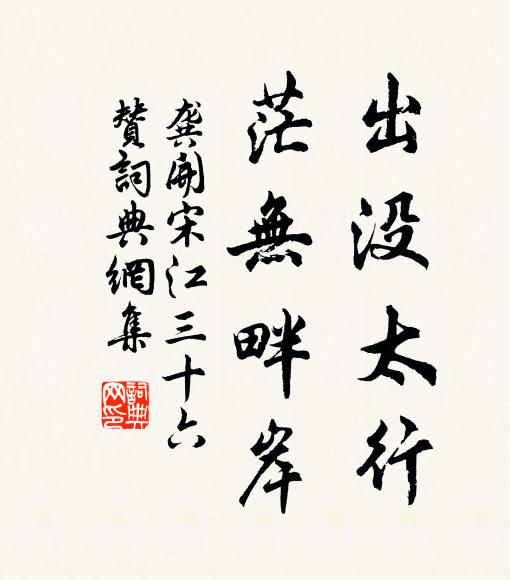 出没太行
茫無畔岸
龚開宋江三十六
贊詞典網集
詞典網印